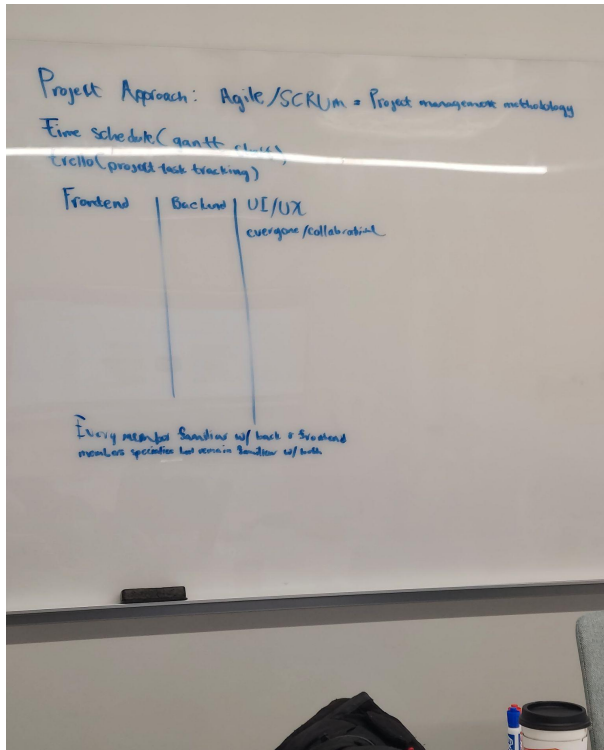 Project Approach: Agile/SCRUM = Project management methodology
Time schedule (gantt chart)
trello (project task tracking)
Frontend | Backend | UI/UX
everyone/collabrative
Every member familiar w/ back & frontend
members specialize but remain familiar w/ both